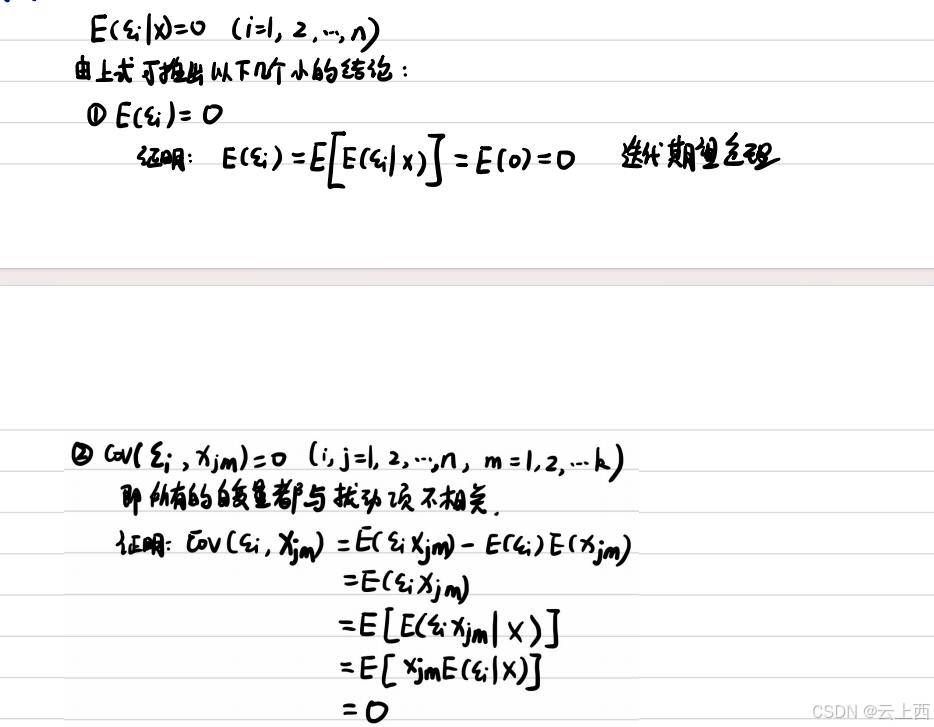 E(εᵢ|X)=0 (i=1, 2, …, n)
由上式可推出以下几个小的结论：
① E(εᵢ) = 0
证明： E(εᵢ) = E[E(εᵢ|X)] = E(0) = 0 迭代期望定理
② Cov(εᵢ, xⱼₘ)=0 (i, j=1, 2, …, n, m=1, 2, …k)
即所有的自变量都与扰动项不相关.
证明: Cov(εᵢ, xⱼₘ) = E(εᵢxⱼₘ) - E(εᵢ)E(xⱼₘ)
=E(εᵢxⱼₘ)
=E[E(εᵢxⱼₘ|X)]
=E[xⱼₘE(εᵢ|X)]
= 0
CSDN @云上西